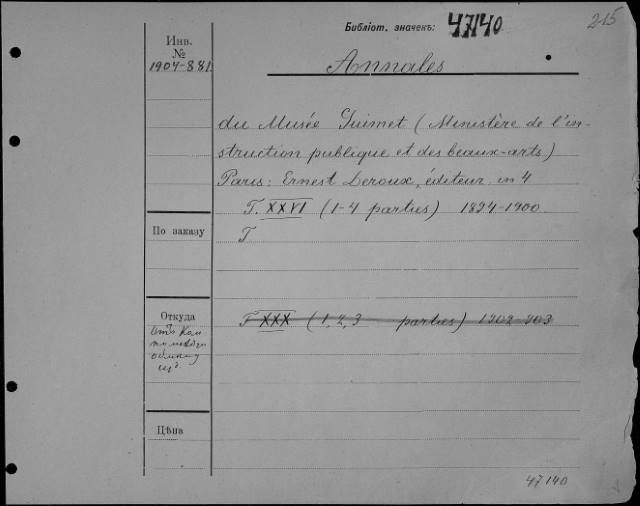 215
Библіот. значекъ: 47140
Инв.
№
1904-881
Annales
du Musée Guimet (Ministère de l'in-
struction publique et des beaux-arts)
Paris: Ernest Leroux, éditeur, in 4
T. XXVI (1-4 parties) 1894-1900
По заказу
T
Откуда
T XXX (1, 2, 3 parties) 1902-903
Цѣна
47140